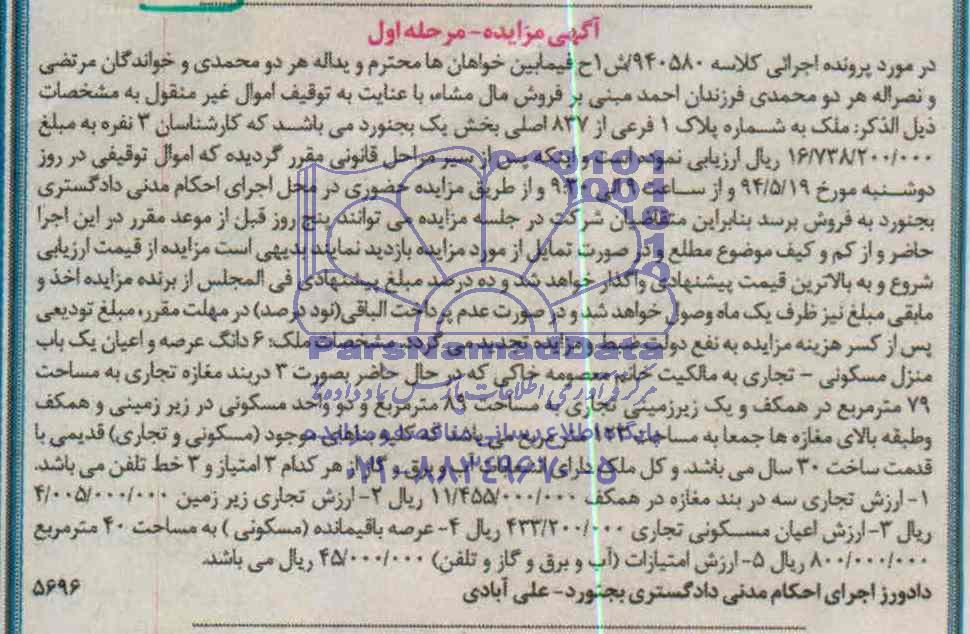 آگهی مزایده - مرحله اول
در مورد پرونده اجرائی کلاسه ۹۴۰۵۸۰/ش۱ح فیمابین خواهان ها محترم و یداله هر دو محمدی و خواندگان مرتضی
و نصراله هر دو محمدی فرزندان احمد مبنی بر فروش مال مشاء، با عنایت به توقیف اموال غیر منقول به مشخصات
ذیل الذکر: ملک به شماره پلاک ۱ فرعی از ۸۳۷ اصلی بخش یک بجنورد می باشد که کارشناسان ۳ نفره به مبلغ
۱۶/۷۳۸/۲۰۰/۰۰۰ ریال ارزیابی نموده است و اینکه پس از سیر مراحل قانونی مقرر گردیده که اموال توقیفی در روز
دوشنبه مورخ ۹۴/۵/۱۹ و از ساعت ۹ الی ۹:۳۰ و از طریق مزایده حضوری در محل اجرای احکام مدنی دادگستری
بجنورد به فروش برسد بنابراین متقاضیان شرکت در جلسه مزایده می توانند پنج روز قبل از موعد مقرر در این اجرا
حاضر و از کم و کیف موضوع مطلع و در صورت تمایل از مورد مزایده بازدید نمایند بدیهی است مزایده از قیمت ارزیابی
شروع و به بالاترین قیمت پیشنهادی واگذار خواهد شد و ده درصد مبلغ پیشنهادی فی المجلس از برنده مزایده اخذ و
مابقی مبلغ نیز ظرف یک ماه وصول خواهد شد و در صورت عدم پرداخت الباقی (نود درصد) در مهلت مقرر، مبلغ تودیعی
پس از کسر هزینه مزایده به نفع دولت ضبط و مزایده تجدید می گردد. مشخصات ملک: ۶ دانگ عرصه و اعیان یک باب
منزل مسکونی - تجاری به مالکیت خانم معصومه خاکی که در حال حاضر بصورت ۳ دربند مغازه تجاری به مساحت
۷۹ مترمربع در همکف و یک زیرزمینی تجاری به مساحت ۸۹ مترمربع و دو واحد مسکونی در زیر زمینی و همکف
وطبقه بالای مغازه ها جمعا به مساحت مترمربع می باشد که کلیه بناهای موجود (مسکونی و تجاری) قدیمی با
قدمت ساخت ۳۰ سال می باشد. و کل ملک دارای انشعابات آب و برق و گاز از هر کدام ۳ امتیاز و ۳ خط تلفن می باشد.
۱- ارزش تجاری سه در بند مغازه در همکف ۱۱/۴۵۵/۰۰۰/۰۰۰ ریال ۲- ارزش تجاری زیر زمین ۴/۰۰۵/۰۰۰/۰۰۰
ریال ۳- ارزش اعیان مسکونی تجاری ۴۳۳/۲۰۰/۰۰۰ ریال ۴- عرصه باقیمانده (مسکونی) به مساحت ۴۰ مترمربع
۸۰۰/۰۰۰/۰۰۰ ریال ۵- ارزش امتیازات (آب و برق و گاز و تلفن) ۴۵/۰۰۰/۰۰۰ ریال می باشد.
دادورز اجرای احکام مدنی دادگستری بجنورد - علی آبادی
۵۶۹۶
ParsNamadData
مرکز فرآوری اطلاعات پارس نماد داده ها
پایگاه اطلاع رسانی مناقصه و مزایده
۰۲۱-۸۸۳۴۹۶۷۰-۵